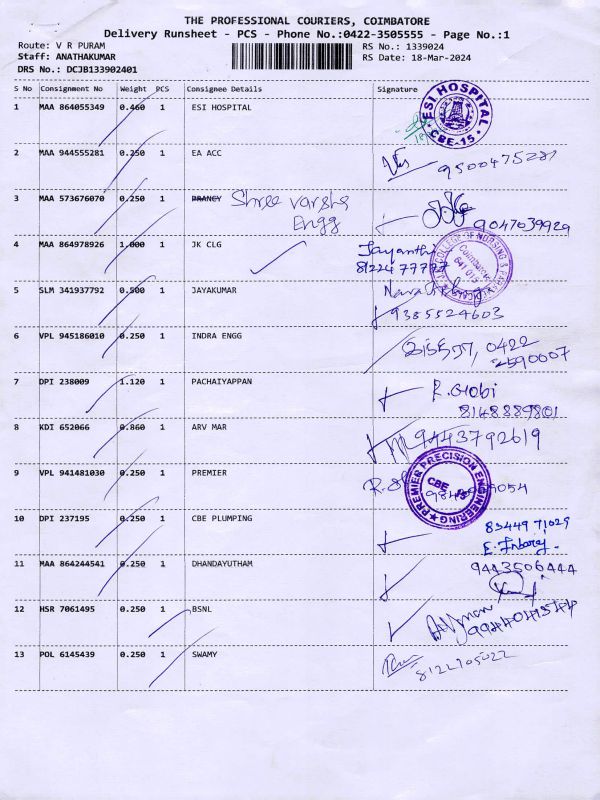 THE PROFESSIONAL COURIERS, COIMBATORE
Delivery Runsheet - PCS - Phone No.:0422-3505555 - Page No.:1
Route: V R PURAM
RS No.: 1339024
Staff: ANATHAKUMAR
RS Date: 18-Mar-2024
DRS No.: DCJB133902401
S No Consignment No Weight PCS Consignee Details Signature
1 MAA 864055349 0.460 1 ESI HOSPITAL
ESI HOSPITAL
CBE-15.
2 MAA 944555281 0.250 1 EA ACC
9500475281
3 MAA 573676070 0.250 1 PRANCY Shree Varsha
Engg
9047039929
4 MAA 864978926 1.000 1 JK CLG Jayanthi
81224 77777
COLLEGE OF NURSING &
Coimbatore
641 015
5 SLM 341937792 0.500 1 JAYAKUMAR
9385524603
6 VPL 945186010 0.250 1 INDRA ENGG 0422
2590007
7 DPI 238009 1.120 1 PACHAIYAPPAN R. Gobi
8148889801
8 KDI 652066 0.860 1 ARV MAR 9443792619
9 VPL 941481030 0.250 1 PREMIER
PREMIER PRECISION ENGINEERING
CBE - 15
10 DPI 237195 0.250 1 CBE PLUMPING 83449 71029
E. Inbaraj.
11 MAA 864244541 0.250 1 DHANDAYUTHAM 9443506444
12 HSR 7061495 0.250 1 BSNL
13 POL 6145439 0.250 1 SWAMY
8122705022